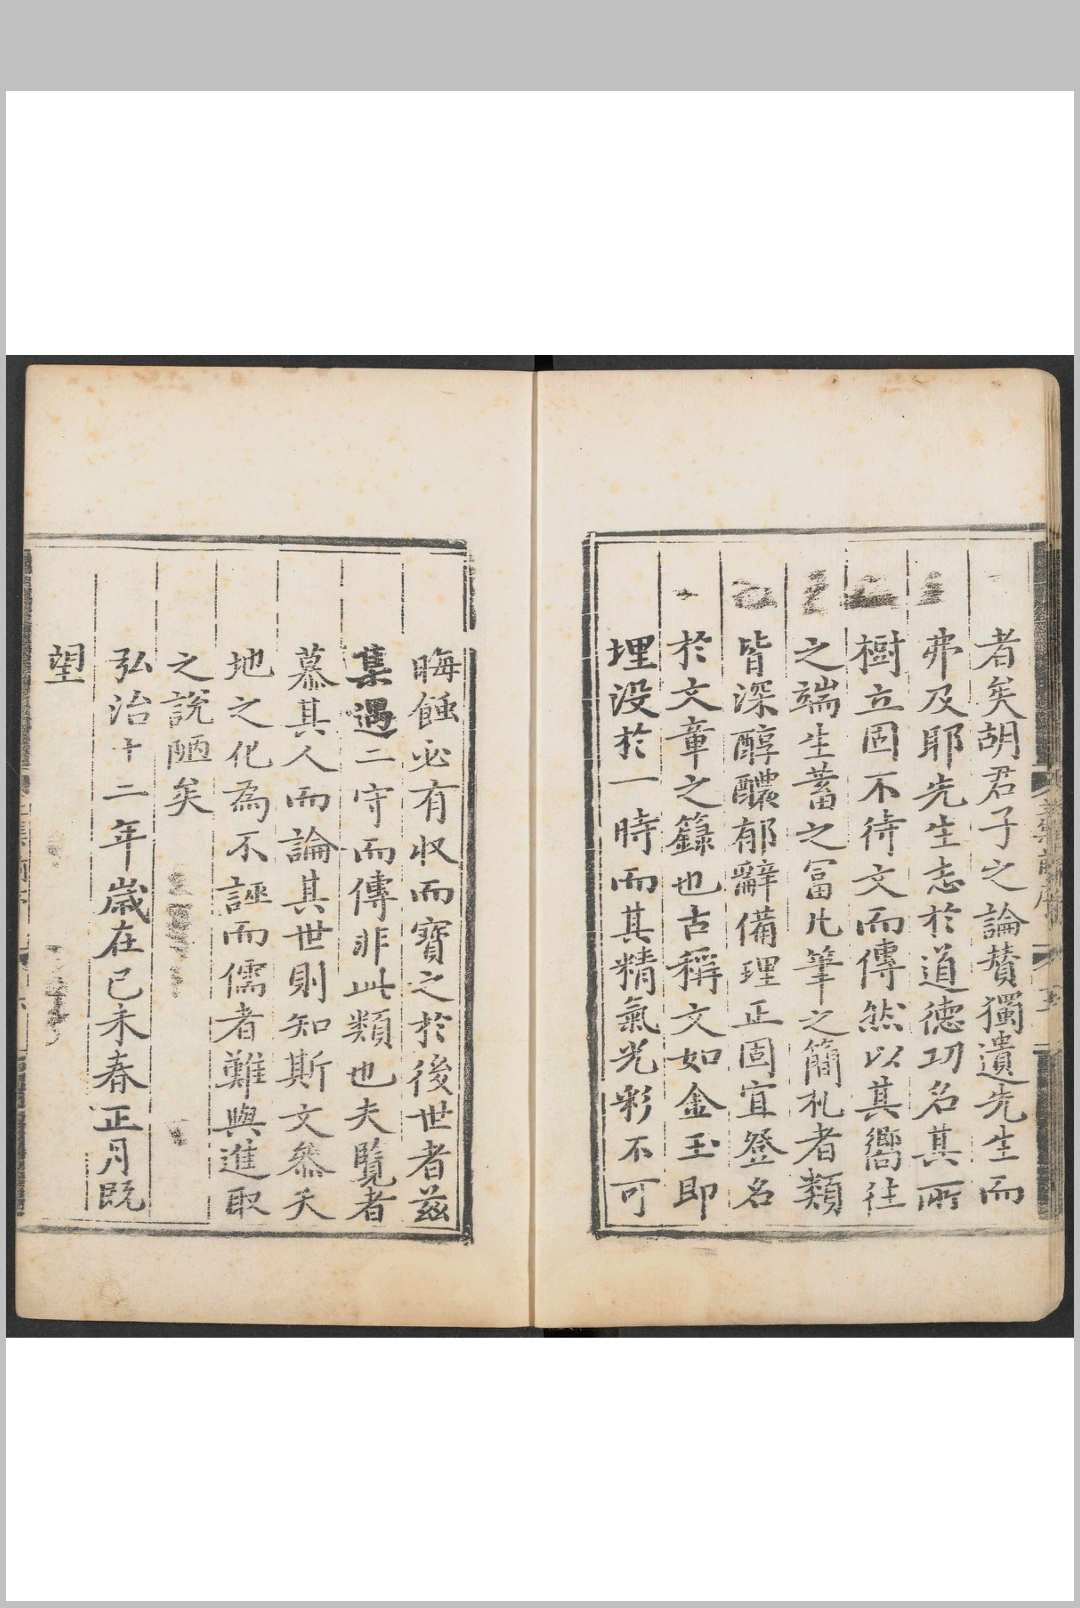 者矣胡君子之論賛獨遺先生而
弗及耶先生志於道德功名其所
樹立固不待文而傳然以其嚮往
之端生蓄之冨凡筆之簡札者類
皆深醇醲郁辭備理正固宜登名
於文章之籙也古稱文如金玉即
埋没於一時而其精氣光彩不可
晦蝕必有收而寶之於後世者兹
集遇二守而傳非此類也夫覽者
慕其人而論其世則知斯文叅天
地之化為不誣而儒者難與進取
之說陋矣
弘治十二年歲在己未春正月既
望